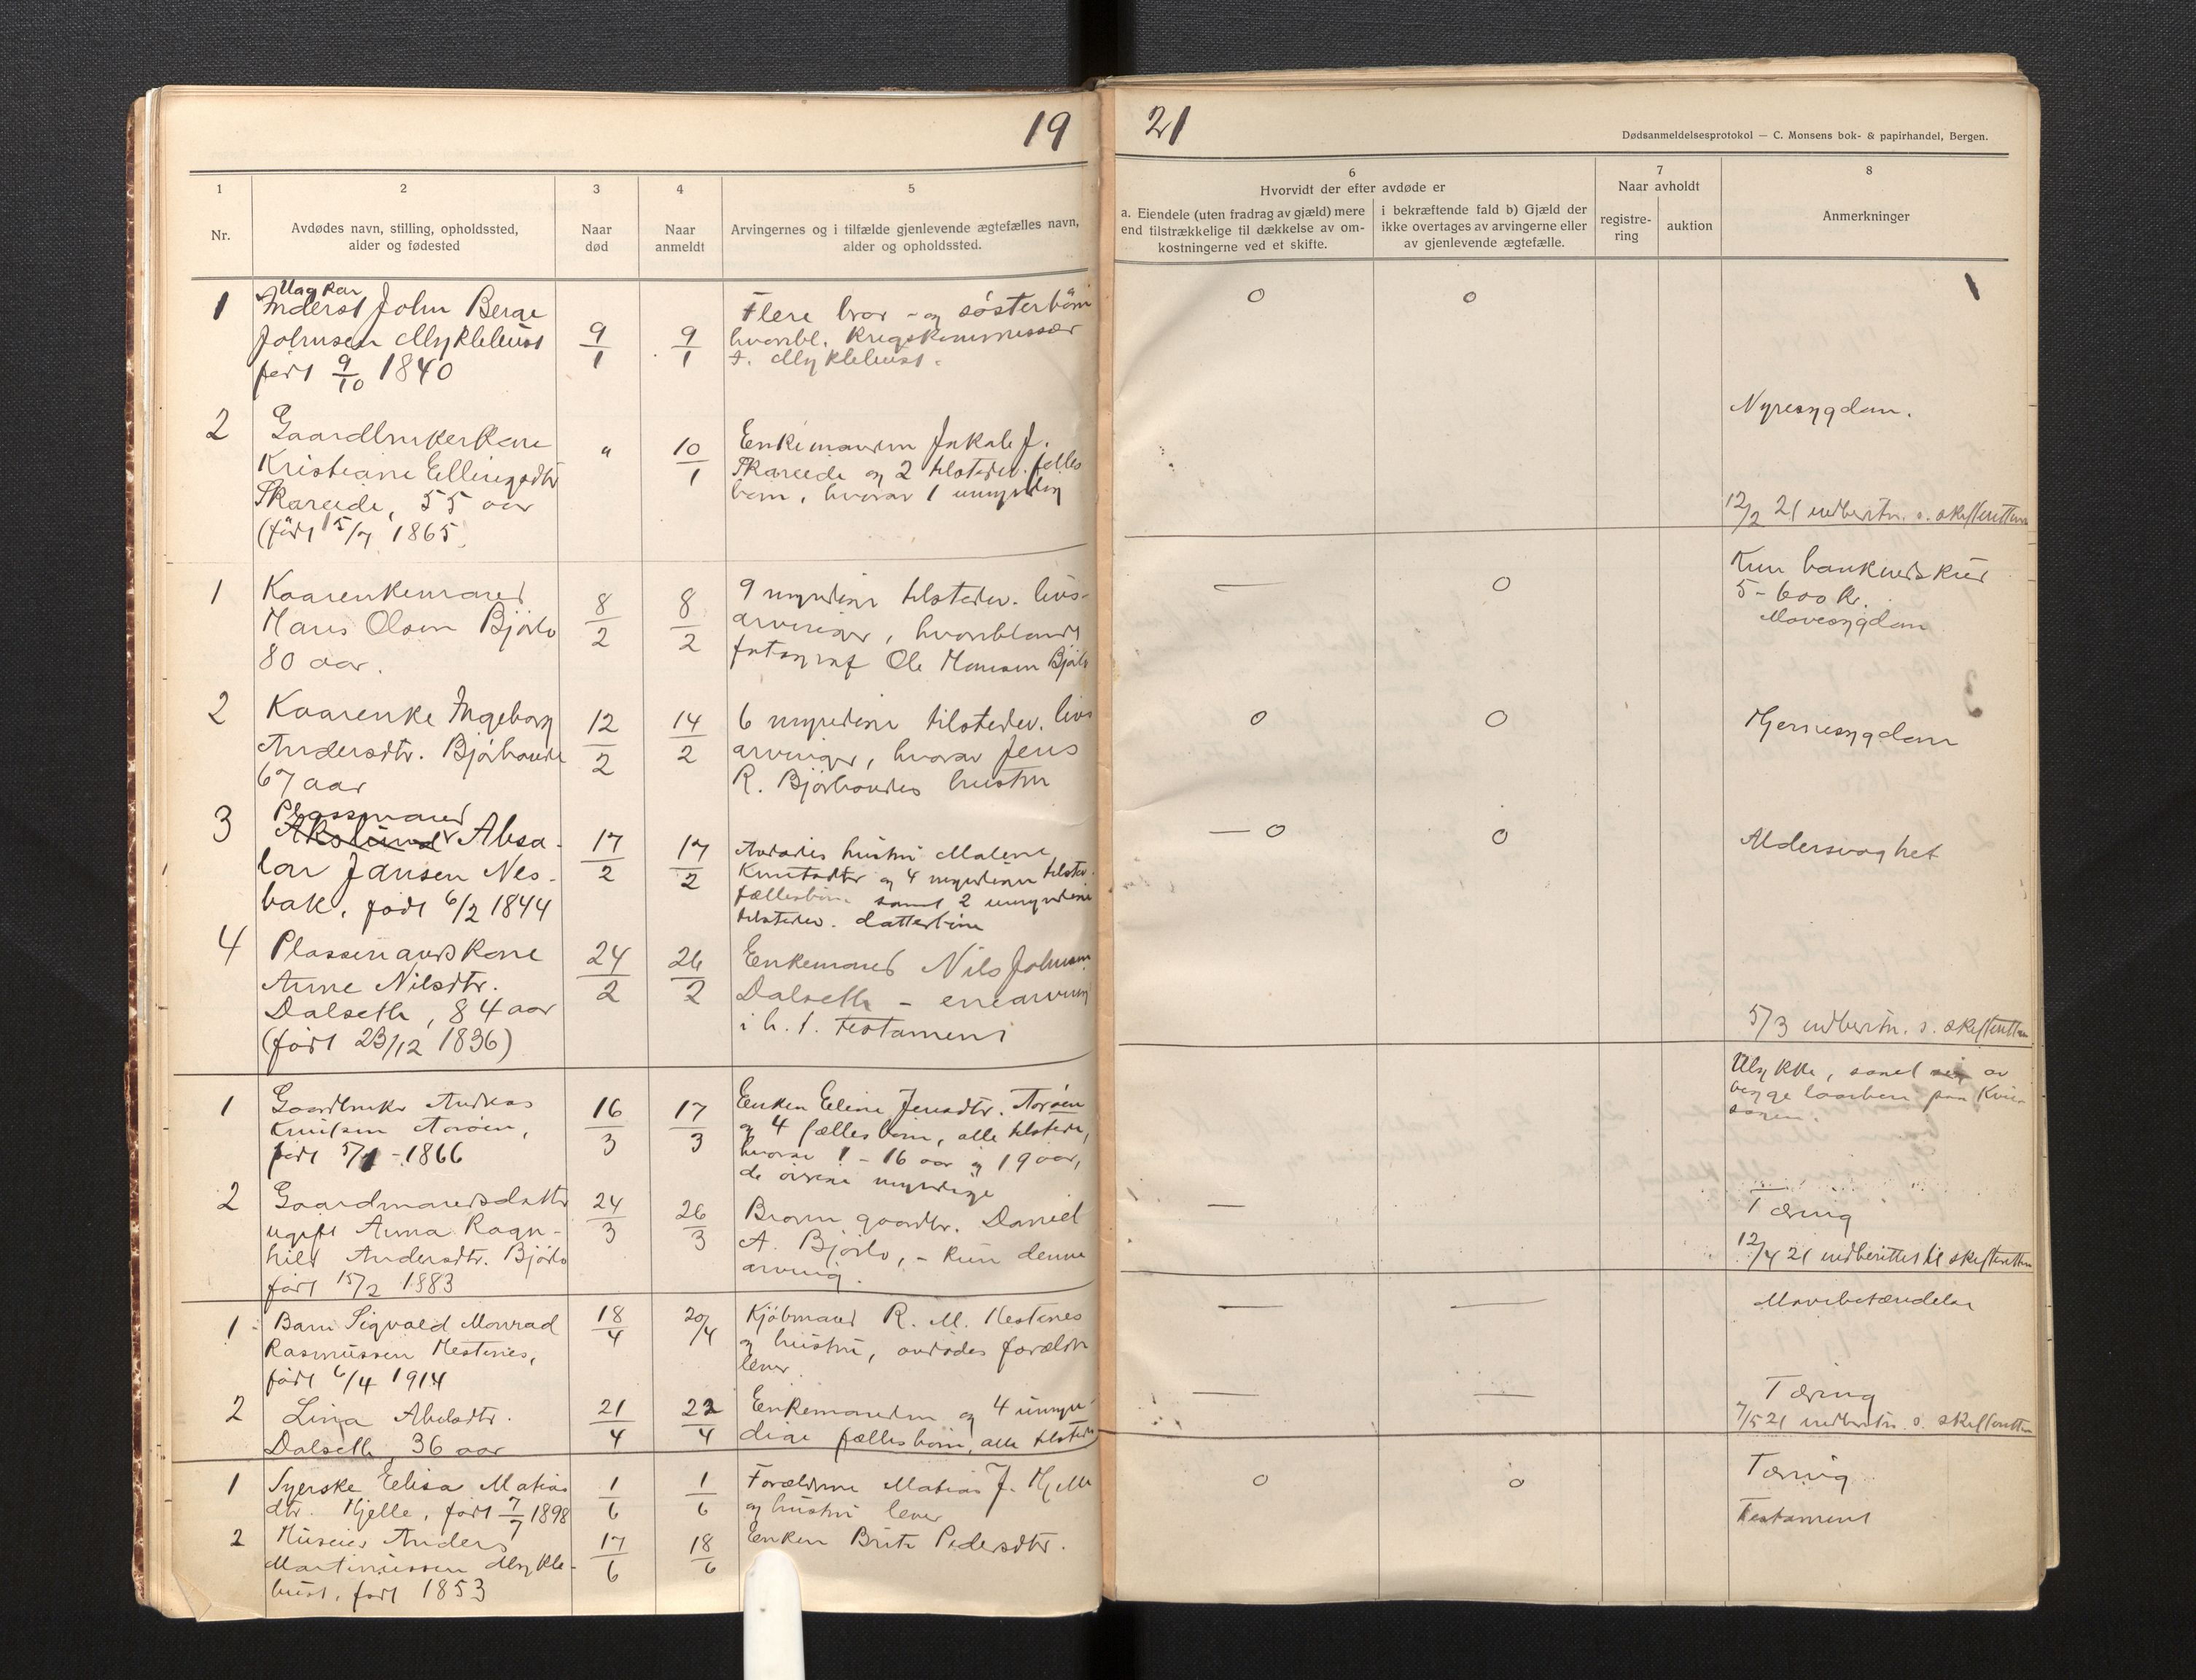 19
21
Dødsanmeldelsesprotokol — C. Monsens bok- & papirhandel, Bergen.
1
Nr.
2
Avdødes navn, stilling, opholdssted,
alder og fødested
3
Naar
død
4
Naar
anmeldt
5
Arvingernes og i tilfælde gjenlevende ægtefælles navn,
alder og opholdssted.
6
Hvorvidt der efter avdøde er
a. Eiendele (uten fradrag av gjæld) mere
end tilstrækkelige til dækkelse av om-
kostningerne ved et skifte.
i bekræftende fald b) Gjæld der
ikke overtages av arvingerne eller
av gjenlevende ægtefælle.
7
Naar avholdt
registre-
ring
auktion
8
Anmerkninger
1
Ungkar
Inderst John Berge
Johnsen Myklebust
født 9/10 1840
9/1
9/1
Flere bror - og søsterbørn
hvoribl. Krigskommissær
Myklebust.
0
0
2
Gaardbrukerkone
Kristiane Ellingsdtr
Skareide, 55 aar
(født 15/7 1865.
"
10/1
Enkemanden Jakob J.
Skareide og 2 tilstedev. fælles
børn, hvorav 1 umyndig
Nyresygdom.
12/2 21 indberetn. s. skifteretten
1
Kaarenkemand
Hans Olsen Bjørlo
80 aar.
8/2
8/2
9 myndige tilstedev. livs-
arvinger, hvoriblandt
fotograf Ole Hansen Bjørlo
—
0
Kun bankindskud
5-600 kr.
Mavesygdom
2
Kaarenke Ingeborg
Andersdtr. Bjørhovde
67 aar
12/2
14/2
6 myndige tilstedev. livs
arvinger, hvorav Jens
R. Bjørhovdes hustru
0
0
Hjernesygdom
3
Plassmand
Absa-
lon Jansen Nes-
bak, født 6/2 1844
17/2
17/2
Avdødes hustru Malene
Knutsdtr og 4 myndige tilstev.
fællesbørn samt 2 umyndige
tilstedev. datterbørn
— 0
0
Alderssvaghet
4
Plassmandskone
Anne Nilsdtr.
Dalseth, 84 aar
(født 23/12 1836)
24/2
26/2
Enkemand Nils Johnsen
Dalseth - enearving
i h. t. testament
5/3 indberetn. s. skifteretten
1
Gaardbruker Andreas
Knutsen Aarøen,
født 5/1 - 1866
16/3
17/3
Enken Eline Jensdtr. Aarøen
og 4 fællesbørn, alle tilstede,
hvorav 1 - 16 aar og 19 aar,
de øvrige myndige
Ulykke, av
begge laarben paa
2
Gaardmandsdatter
ugift Anna Ragn-
hild Andersdtr. Bjørlo
født 15/2 1883
24/3
26/3
Broren gaardbr. Daniel
A. Bjørlo, - kun denne
arving.
—
Tæring
12/4 21 indberettet til skifteretten
1
Barn Sigvald Monrad
Rasmussen Hestenes,
født 6/4 1914
18/4
20/4
Kjøbmand R. M. Hestenes
og hustru, avdødes forældre
lever
—
—
Mavebetændelse
2
Lina Abelsdtr.
Dalseth 36 aar
21/4
22/4
Enkemanden og 4 umyn-
dige fællesbørn, alle tilstede
—
—
Tæring
7/5 21 indberetn. s. skifteretten
1
Syerske Elisa Matias
dtr. Hjelle, født 7/7 1898
1/6
1/6
Forældrene Matias J. Hjelle
og hustru lever
0
0
Tæring
2
Huseier Anders
Martinussen Mykle-
bust, født 1853
17/6
18/6
Enken Brite Pedersdtr.
Testament